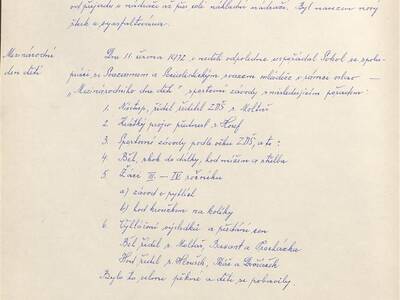 od příjezdu o nádraží až po celé nákladní nádraží. Byl navezen nový
štěrk a vyasfaltována.
Mezinárodní
den dětí
Dne 11. února 1972 v neděli odpoledne uspořádal Sokol ve spolu-
práci se Svazarmem a Socialistickým svazem mládeže v rámci oslav
„Mezinárodního dne dětí" sportovní závody s následujícím pořadem:
1. Nástup, řídil ředitel ZDŠ s. Moltaš
2. Krátký projev přednesl s. Houf
3. Sportovní závody podle věku ZDŠ, a to:
4. Běh, skok do dálky, hod míčem a střelba
5. Žáci III. – IV. ročníku
a) závod v pytlích
b) hod kroužkem na kolíky
6. Vyhlášení výsledků a předání cen
Běh řídil s. Moltaš, Bursart a Procházka
Hod řídil s. Hloušek, Máš a Dvořáček
Bylo to velmi pěkné a děti se pobavily.